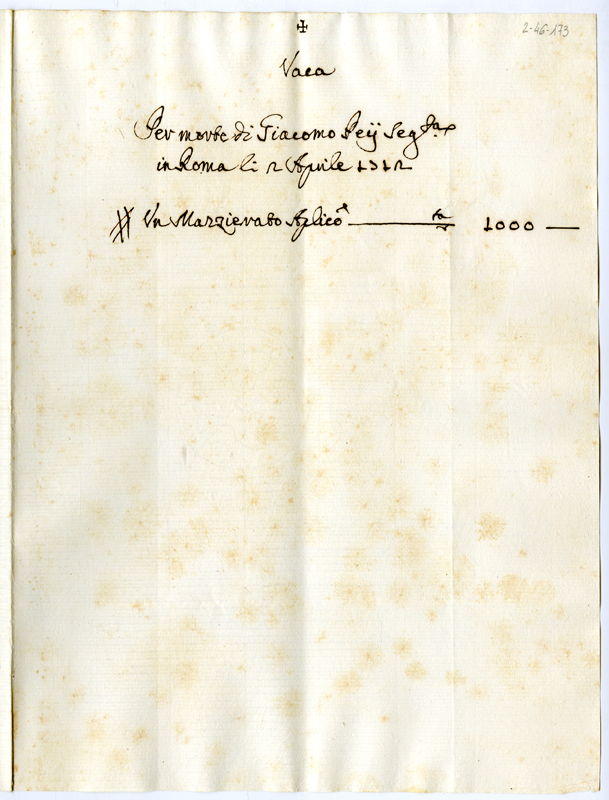 ✠
2-46-173
Vaca
Per morte di Giacomo Peij Seg.ta
in Roma li 2 Aprile
Un Mazzierato Aplico
1000 —